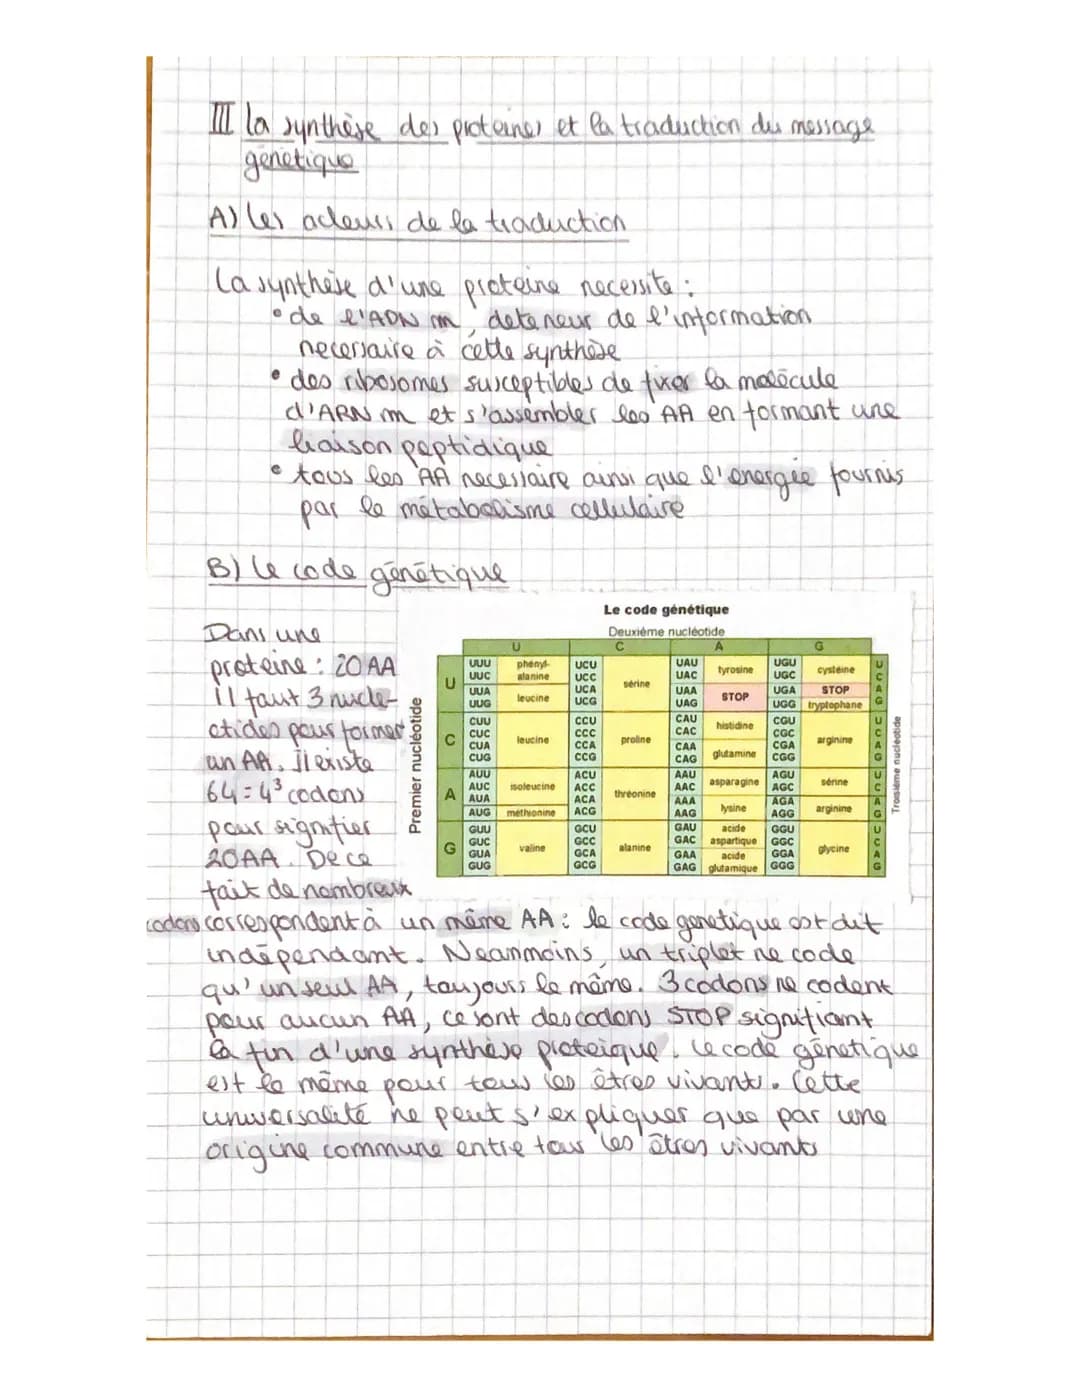 III la synthèse des proteines et la traduction du message
génétique
A) les acteurs de la traduction
La synthèse d'une proteine necessite :
• de l'ADN m, deteneur de l'information
necessaire à cette synthèse
• des ribosomes susceptibles de fixer la molécule
d'ARN m et s'assembler les AA en formant une
liaison peptidique
• tous les AA necessaire ainsi que l'energie fournis
par le métabolisme cellulaire
B) le code génétique
Dans une
proteine : 20 AA
il faut 3 nucle-
otides pour former
un AA. Il existe
64 = 4³ codons
pour signifier
20 AA. De ce
fait de nombreux
Le code génétique
Deuxième nucléotide
U C A G
Premier nucléotide
Troisième nucléotide
U
UUU phényl- UCU sérine UAU tyrosine UGU cystéine U
UUC alanine UCC UAC UGC C
UUA leucine UCA UAA STOP UGA STOP A
UUG UCG UAG UGG tryptophane G
C
CUU leucine CCU proline CAU histidine CGU arginine U
CUC CCC CAC CGC C
CUA CCA CAA glutamine CGA A
CUG CCG CAG CGG G
A
AUU isoleucine ACU thréonine AAU asparagine AGU sérine U
AUC ACC AAC AGC C
AUA ACA AAA lysine AGA arginine A
AUG méthionine ACG AAG AGG G
G
GUU valine GCU alanine GAU acide GGU glycine U
GUC GCC GAC aspartique GGC C
GUA GCA GAA acide GGA A
GUG GCG GAG glutamique GGG G
codons correspondent à un même AA : le code genetique est dit
indépendant. Neanmoins, un triplet ne code
qu'un seul AA, toujours le même. 3 codons ne codent
pour aucun AA, ce sont des codons STOP signifiant
la fin d'une synthèse proteique. Le code génétique
est le même pour tous les êtres vivants. Cette
universalité ne peut s'expliquer que par une
origine commune entre tous les êtres vivants